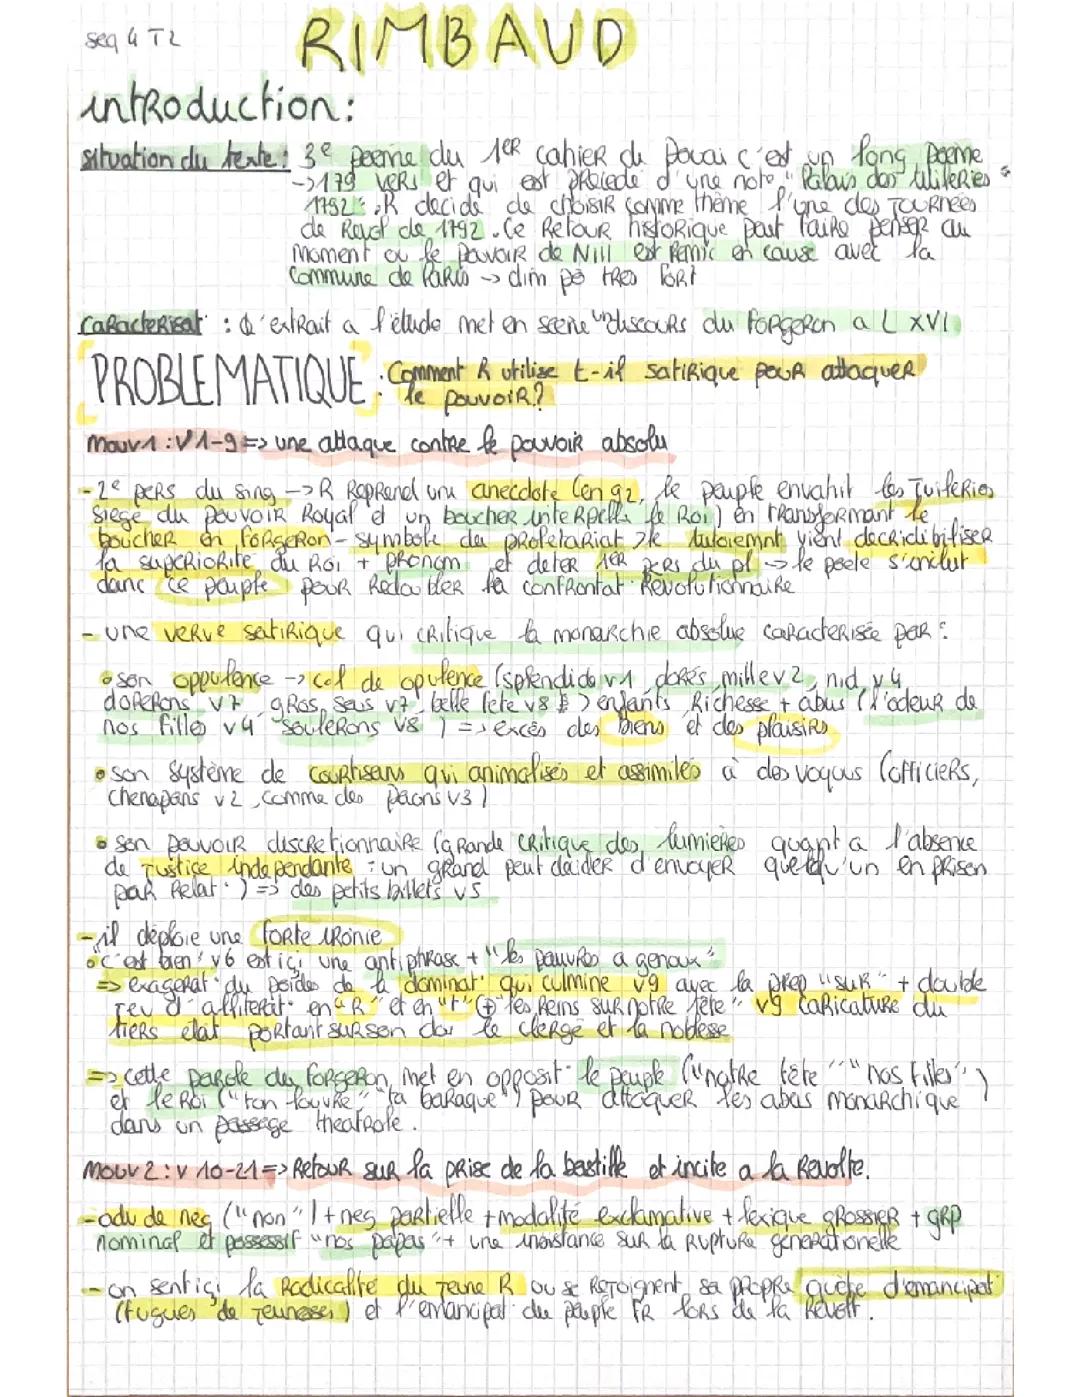 seq 4 T2
RIMBAUD
introduction:
situation du texte: 3e poeme du 1ER cahier de Douai c'est un long poeme
->179 vers et qui est précedé d'une note "Palais des tuileries
1792", R decide de choisir comme thème l'une des journées
de Revot de 1792. Ce Retour historique peut faire penser au
moment ou le pouvoir de NIII est Remis en cause avec la
Commune de Paris -> dim po tres fort
caracterisat° : l'extrait a l'étude met en scene un discours du forgeron a L XVI
PROBLEMATIQUE : Comment R utilise t-il satirique pour attaquer
le pouvoir?
mouv1 : V1-9 => une attaque contre le pouvoir absolu
-2e pers du sing -> R Reprend une anecdote (en 92, le peuple envahit les Tuileries
siege du pouvoir Royal et un boucher interpella le Roi) en transformant le
boucher en forgeron - symbole du proletariat > le tutoiemnt vient décridibiliser
la superiorité du Roi + pronom et deter 1er pers du pl -> le poete s'inclut
danc ce peuple pour Redoubler la confrontat° Revolutionnaire
- une verve satirique qui critique la monarchie absolue caracterisée par :
• son oppulence -> cl de opulence (splendide v1, dorés, mille v2, nid v4
doperons v7, gros sous v7, belle fete v8) enfants Richesse + abus (l'odeur de
nos filles v4 "soulerons v8") => exces des biens et des plaisirs
• son système de courtisans qui animalisés et assimilés a des voyous (officiers,
chenapans v2, comme des paons v3)
• son pouvoir discretionnaire (grande critique des lumieres quant a l'absence
de justice independante : un grand peut decider d'envoyer quelqu'un en prison
par Relat°) => des petits billets v5
- il deploie une forte ironie
• "c'est bien" v6 est ici une antiphrase + "les pauvres a genoux"
=> exagerat° du poides de la dominat° qui culmine v9 avec la prep "sur" + double
jeu d'alliterat° en "R" et en "t" (+ "les Reins sur notre tête" v9 caricature du
tiers etat portant sur son dos le clergé et la noblesse
=> cette parole du forgeron met en opposit° le peuple ("notre tête" "nos filles")
et le Roi ("ton louvre" "ta baraque") pour attaquer les abus monarchique
dans un passage theatrale.
mouv 2 : v 10-21 => Retour sur la prise de la bastille et incite a la Revolte.
- adv de neg ("non") + neg partielle + modalité exclamative + lexique grossier + grp
nominal et possessif "nos papas" + une insistance sur la Rupture générationelle
- on sent ici la Radicalité du jeune R ou se Rejoignent sa propre quête d'emancipat°
(fugues de jeunesses) et l'emancipat° du peuple FR lors de la Revolt°.